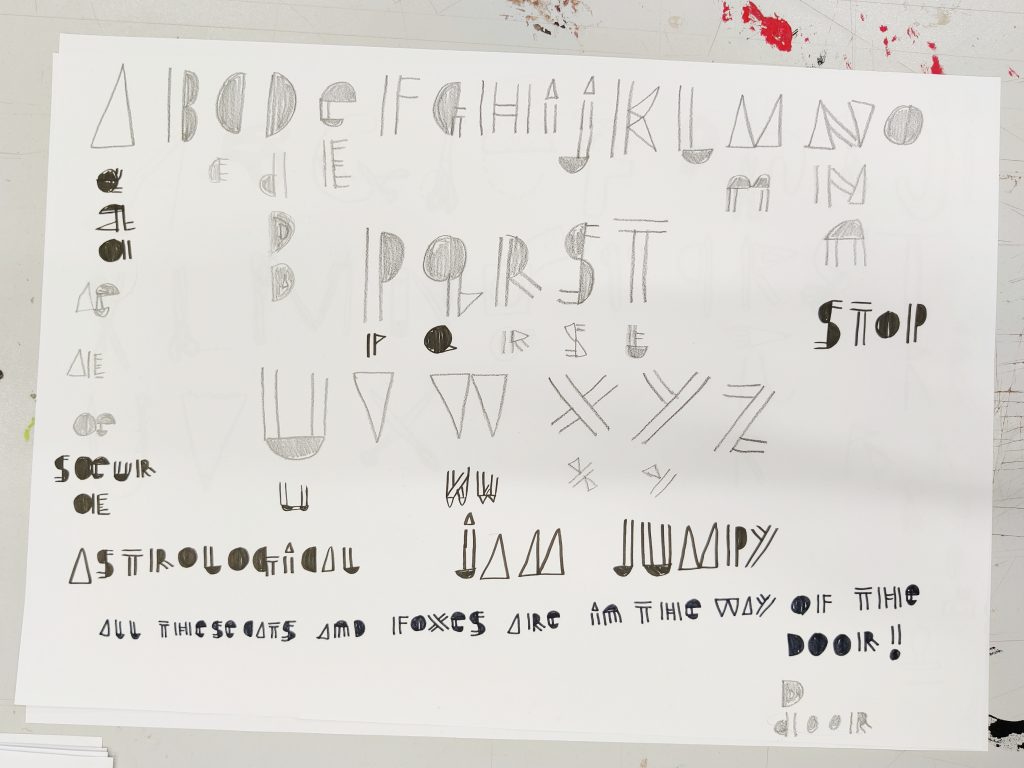 A B C D e F G H i j K L M N O
E d E m N
D
D P Q R S T m
STOP
P Q R S E
AE
œ
U V W X Y Z
SŒUR
U W W X Y
ŒE
ASTROLOGICAL i AM JUMPY
ALL THESE CATS AND FOXES ARE iN THE WAY OF THE
DOOR!!
D
dOOR